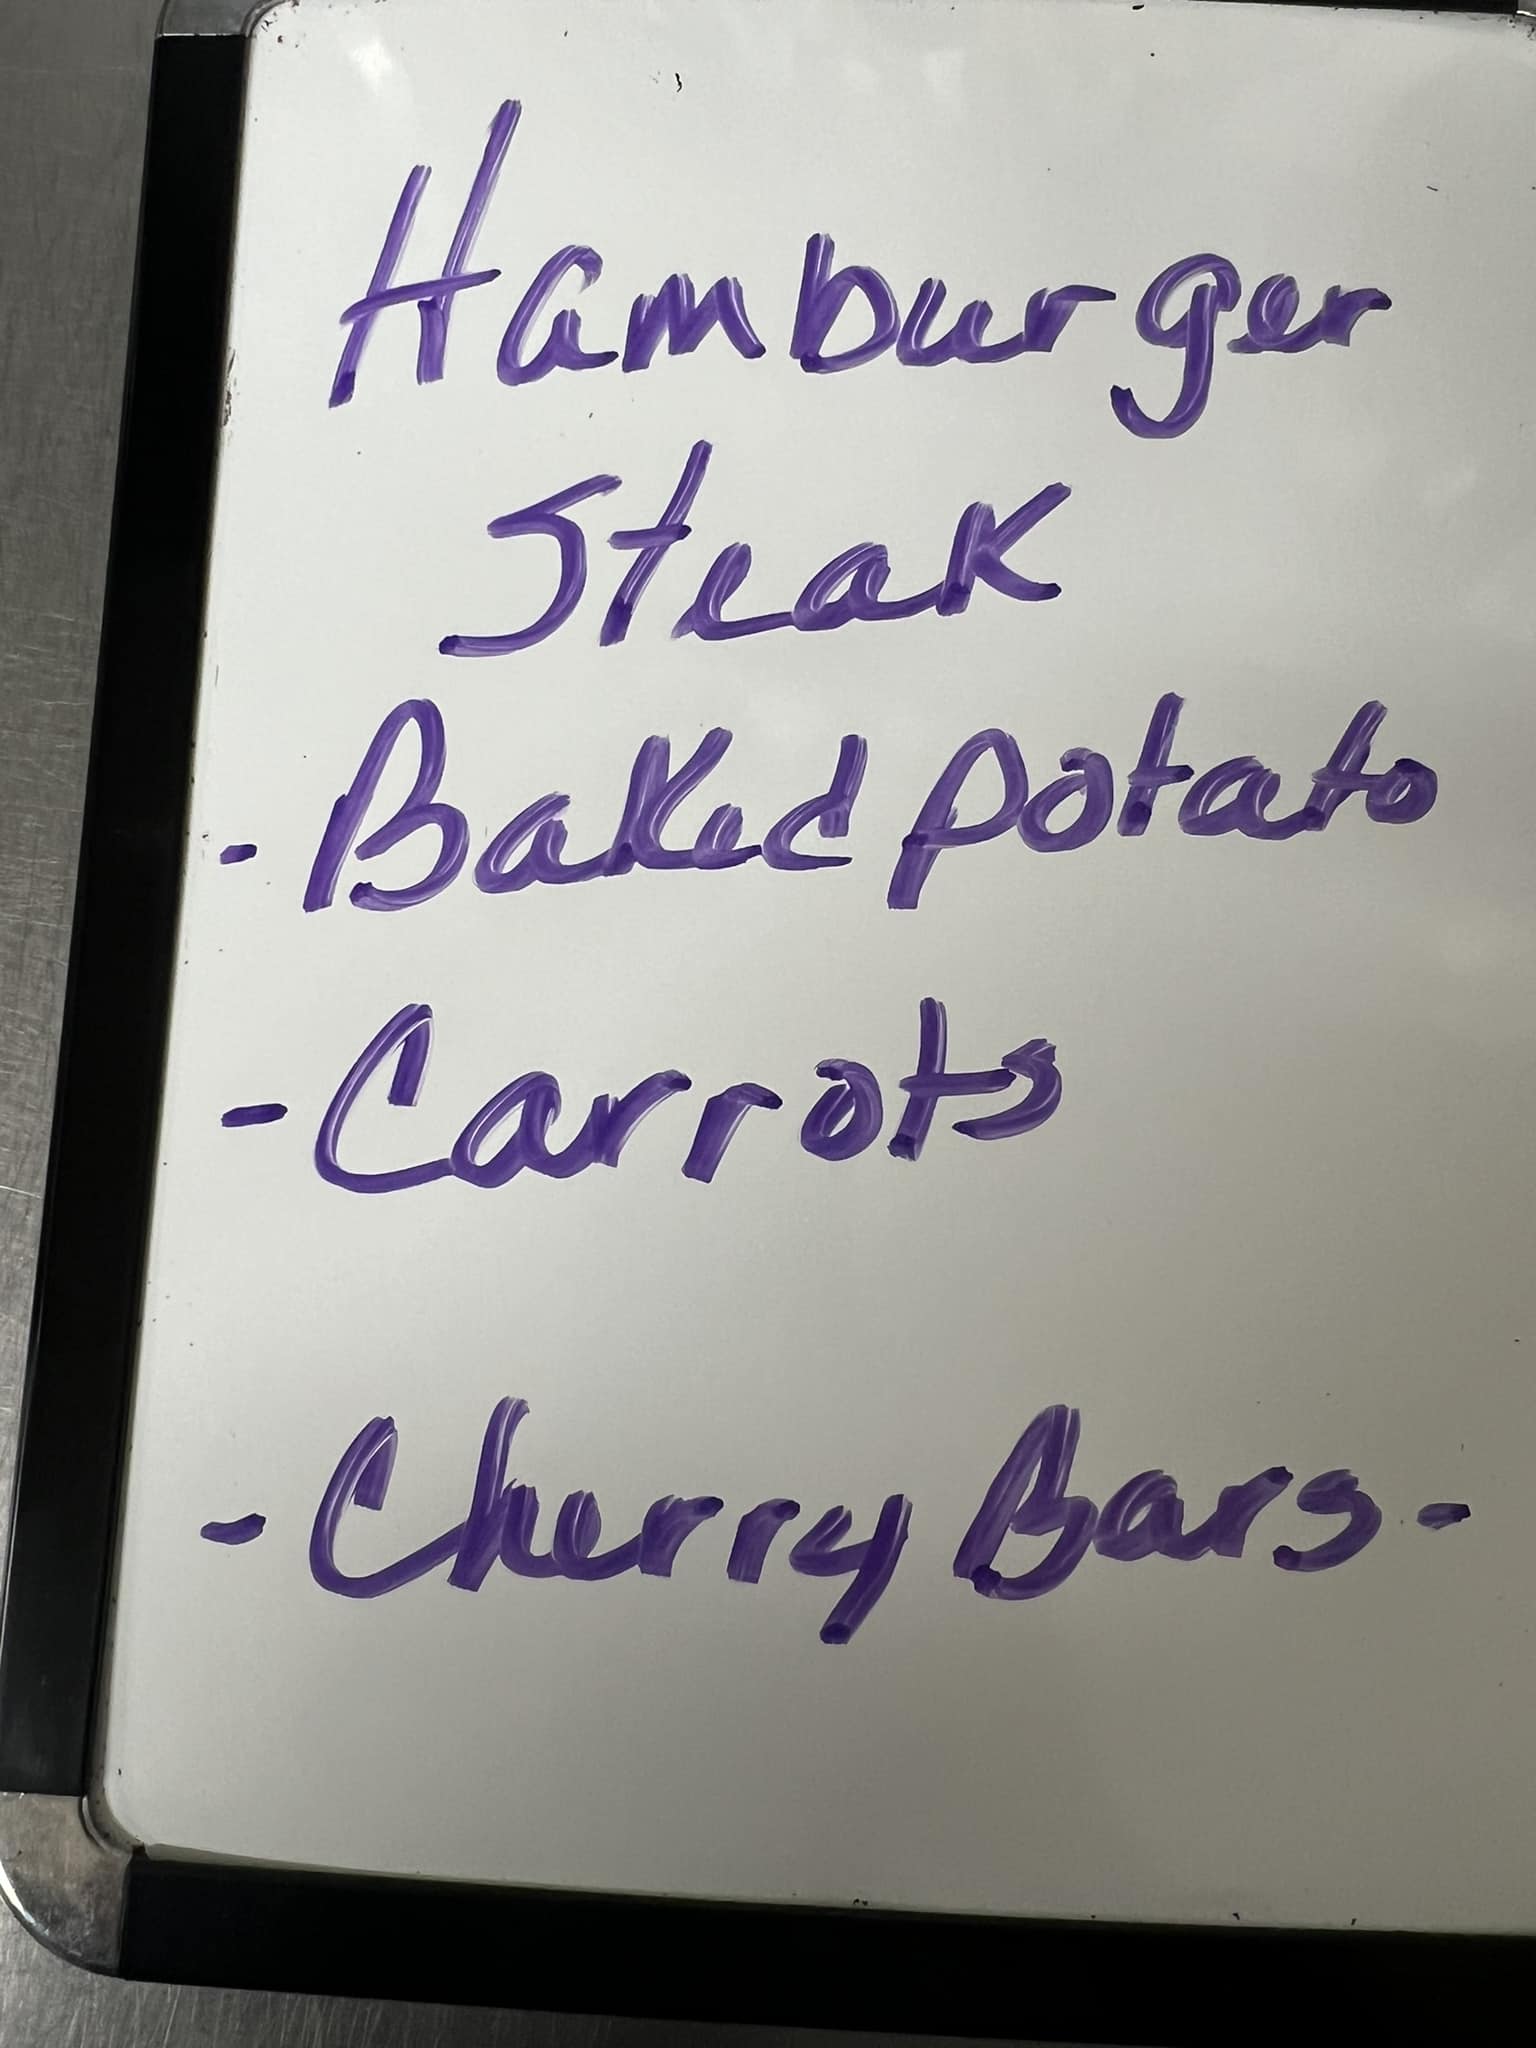 Hamburger
Steak
- Baked potato
- Carrots
- Cherry Bars -